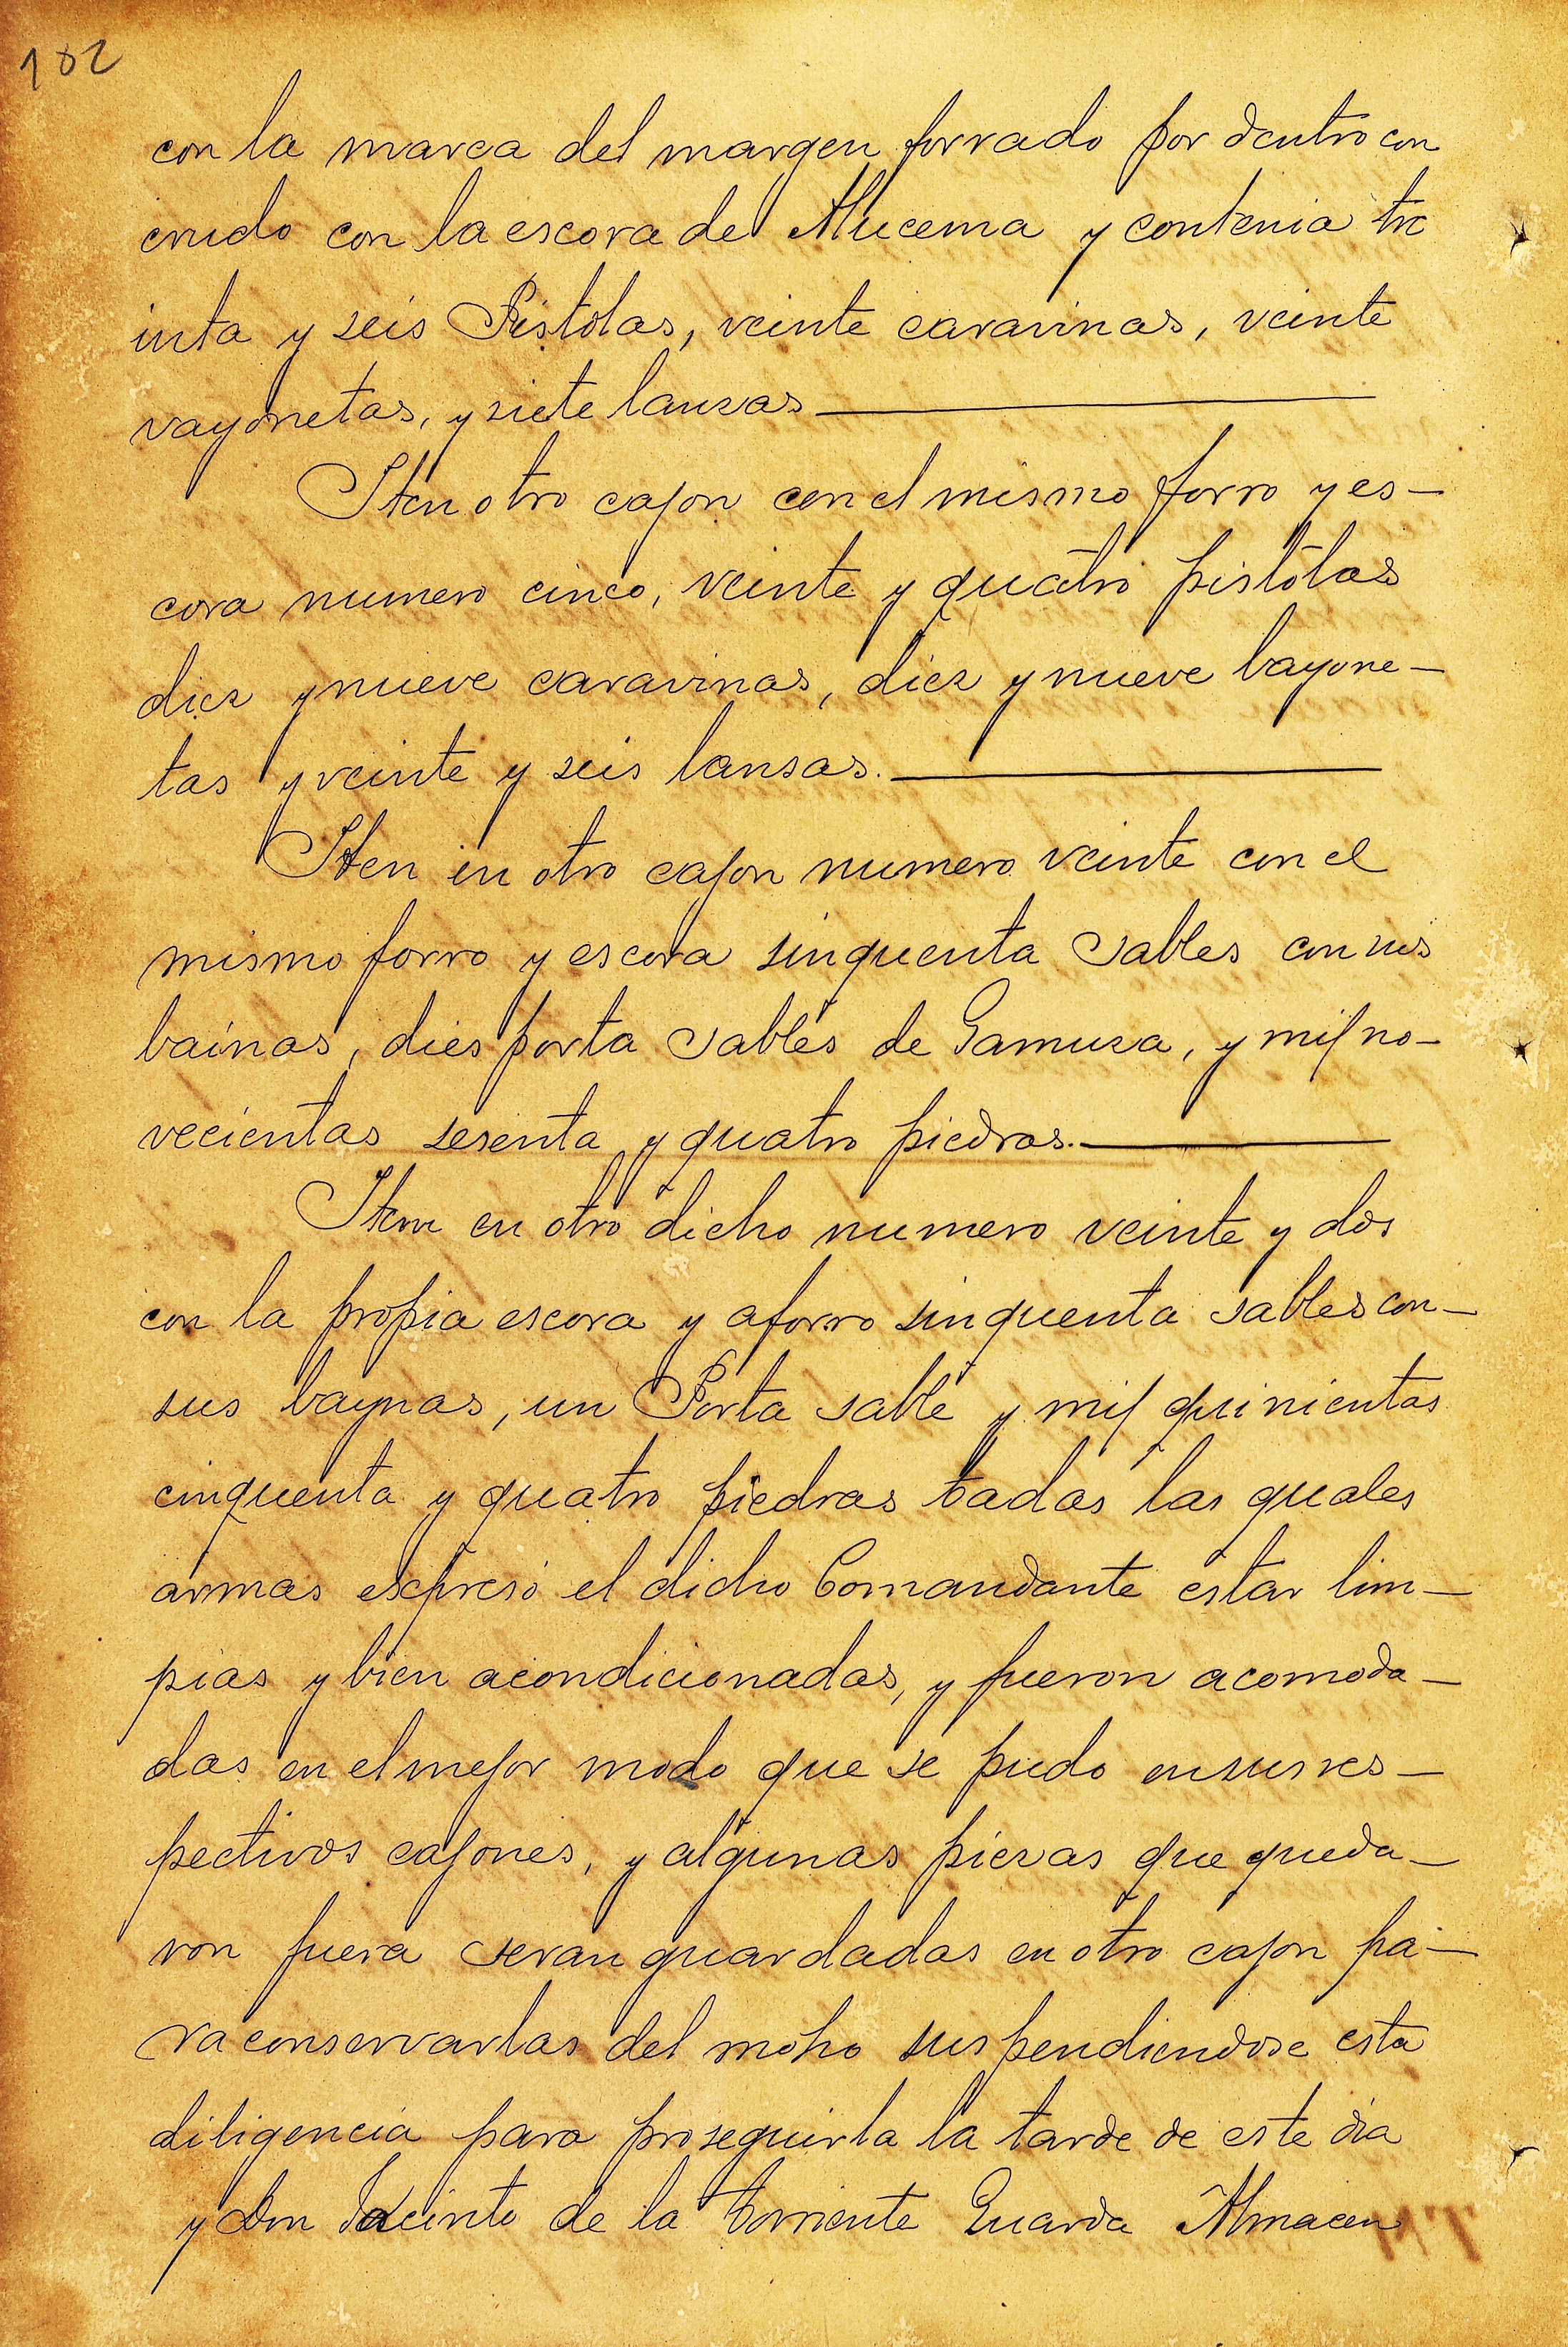 102
con la marca del margen forrado por dentro con
crudo con la escora de Alucema y contenia tre
inta y seis Pistolas, veinte caravinas, veinte
vayonetas, y siete lanzas
Iten otro cajon con el mismo forro y es-
cora numero cinco, veinte y quatro pistolas
diez y nueve caravinas, diez y nueve bayone-
tas y veinte y seis lansas.
Iten en otro cajon numero veinte con el
mismo forro y escora sinquenta sables con sus
bainas, dies porta sables de Gamuza, y mil no-
vecientas sesenta y quatro piedras.
Item en otro dicho numero veinte y dos
con la propia escora y aforro sinquenta sables con-
sus baynas, un Porta sable y mil quinientas
cinquenta y quatro piedras todas las quales
armas espresó el dicho Comandante estar lim-
pias y bien acondicionadas, y fueron acomoda-
das en el mejor modo que se pudo en sus res-
pectivos cajones, y algunas piezas que queda-
ron fuera seran guardadas en otro cajon pa-
ra conservarlas del moho suspendiendose esta
diligencia para proseguirla la tarde de este dia
y Don Jacinto de la Torriente Guarda Almacen